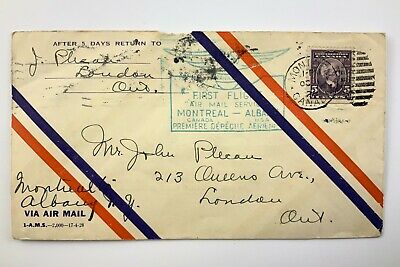 AFTER 5 DAYS RETURN TO
J. Plecan
London
Ont.
FIRST FLIGHT
AIR MAIL SERVICE
MONTREAL — ALBANY
CANADA U.S.A.
PREMIÈRE DÉPÊCHE AÉRIENNE
MONTREAL
CANADA
5
Mr. John Plecan
213 Queens Ave.,
London
Ont.
Montreal to
Albany N.Y.
VIA AIR MAIL
1-A.M.S.—2,000—17-4-28